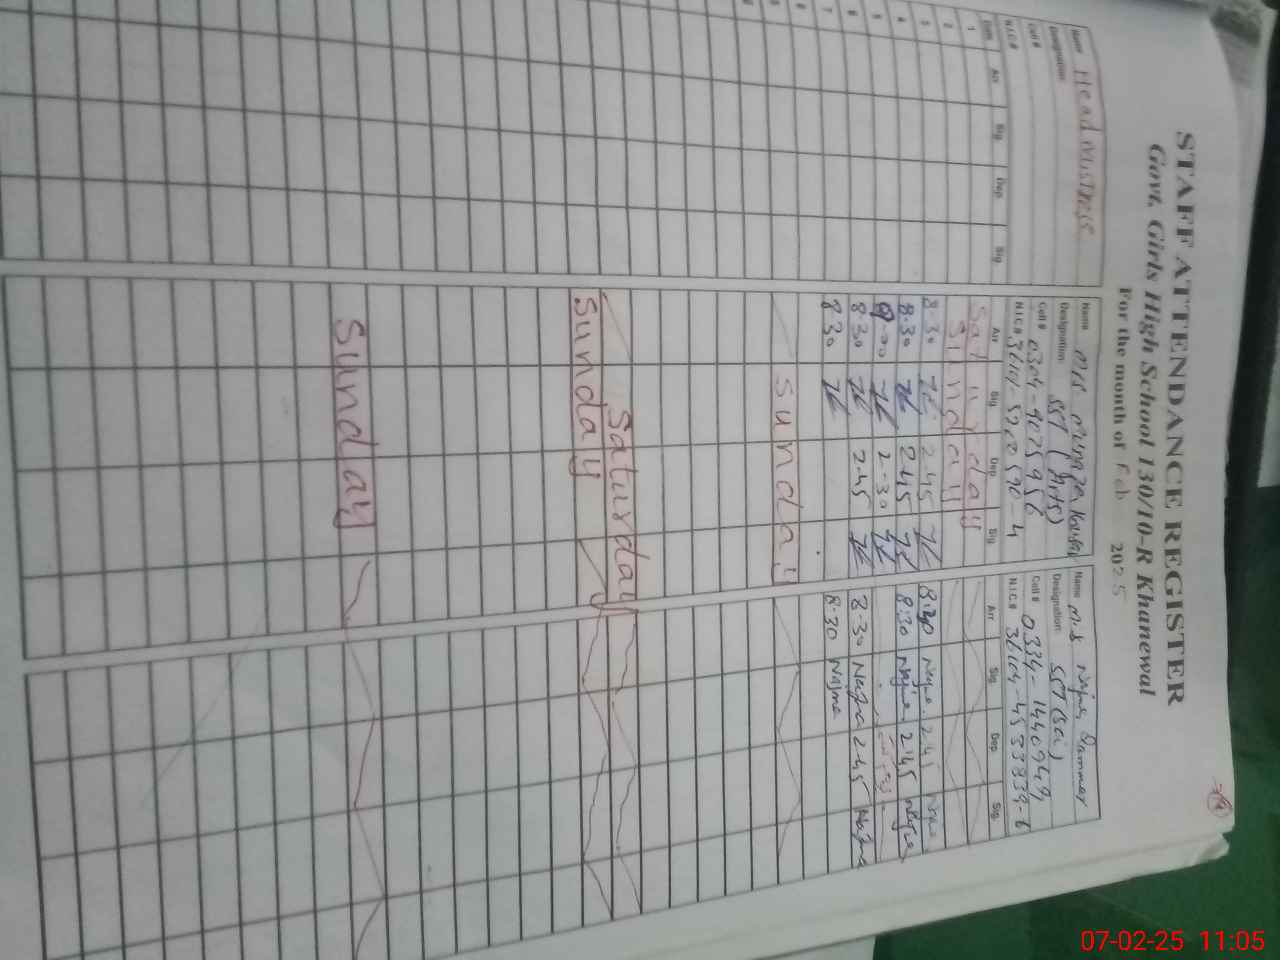 STAFF ATTENDANCE REGISTER
Govt. Girls High School 130/10-R Khanewal
For the month of Feb 2025
Name Head Mistress
Designation:
Cell #
N.I.C #
Date Arr Sig. Dep. Sig.
1
2
3
4
5
6
7
8
9
Name Miss
Designation: SST
Cell # 0304-9075956
N.I.C #
Arr Sig. Dep. Sig.
Saturday
Sunday
8.30 2.45
8.30 2.45
9.00 2.30
8.30 2.45
8.30
Sunday
Saturday
Sunday
Sunday
Name M.S Najma
Designation: SST (Sci)
Cell # 0334-1440949
N.I.C #
Arr Sig. Dep. Sig.
8:30 Najma 2.45 Najma
8:30 Najma 2.45 Najma
8.30 Najma 2.45 Najma
8.30 Najma
07-02-25 11:05